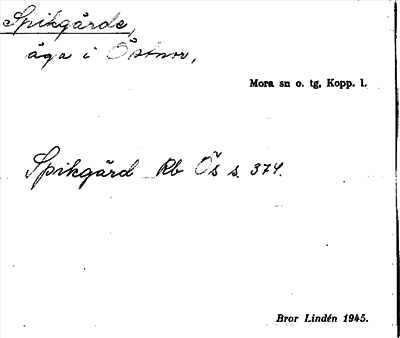 Spikgårde,
äga i Östnor,
Mora sn o. tg, Kopp. l.
Spikgård Rb Ös s. 374.
Bror Lindén 1945.